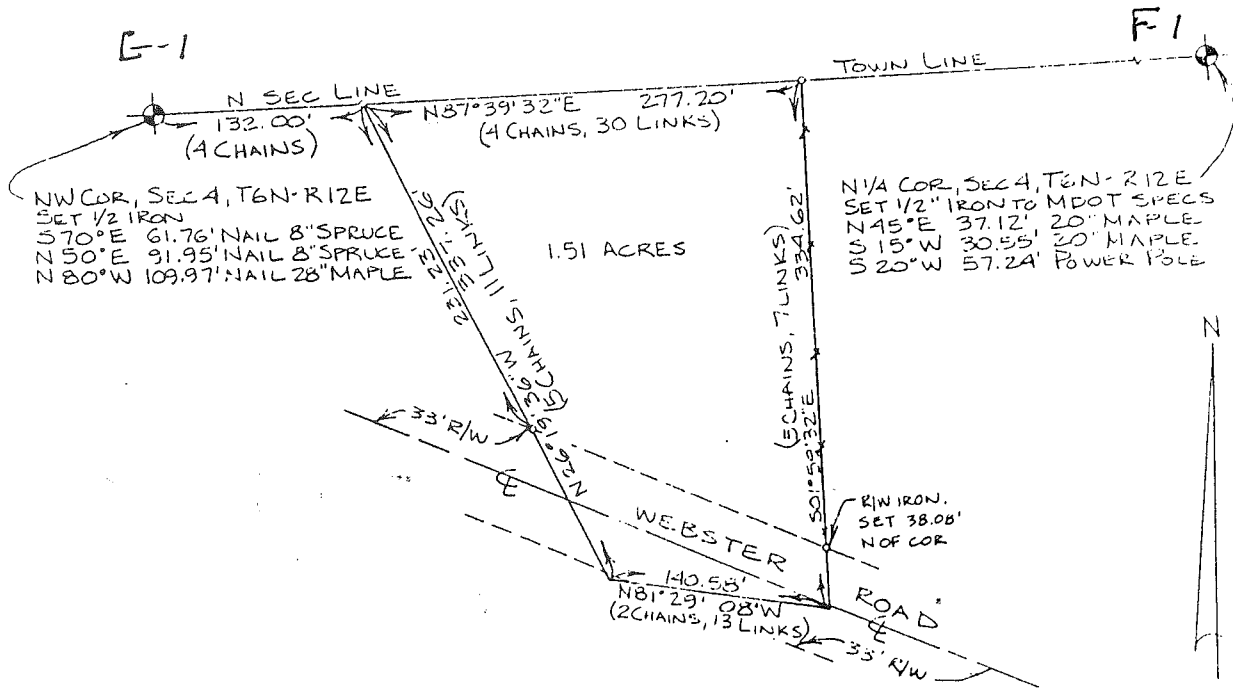 E-1
F-1
N SEC LINE
TOWN LINE
132.00'
(4 CHAINS)
N87°39'32"E 277.20'
(4 CHAINS, 30 LINKS)
NW COR, SEC 4, T6N-R12E
SET 1/2 IRON
S 70°E 61.76' NAIL 8" SPRUCE
N 50°E 91.95' NAIL 8" SPRUCE
N 80°W 109.97' NAIL 28" MAPLE
N 1/4 COR, SEC 4, T6N-R12E
SET 1/2" IRON TO MDOT SPECS
N 45°E 37.12' 20" MAPLE
S 15°W 30.55' 20" MAPLE
S 20°W 57.24' POWER POLE
1.51 ACRES
231.23'
337.26'
N26°19'36"W
(5 CHAINS, 11 LINKS)
334.62'
(5 CHAINS, 7 LINKS)
S01°59'32"E
N
33' R/W
R/W IRON.
SET 38.08'
N OF COR
℄
WEBSTER
ROAD
℄
140.58'
N81°29'08"W
(2 CHAINS, 13 LINKS)
33' R/W